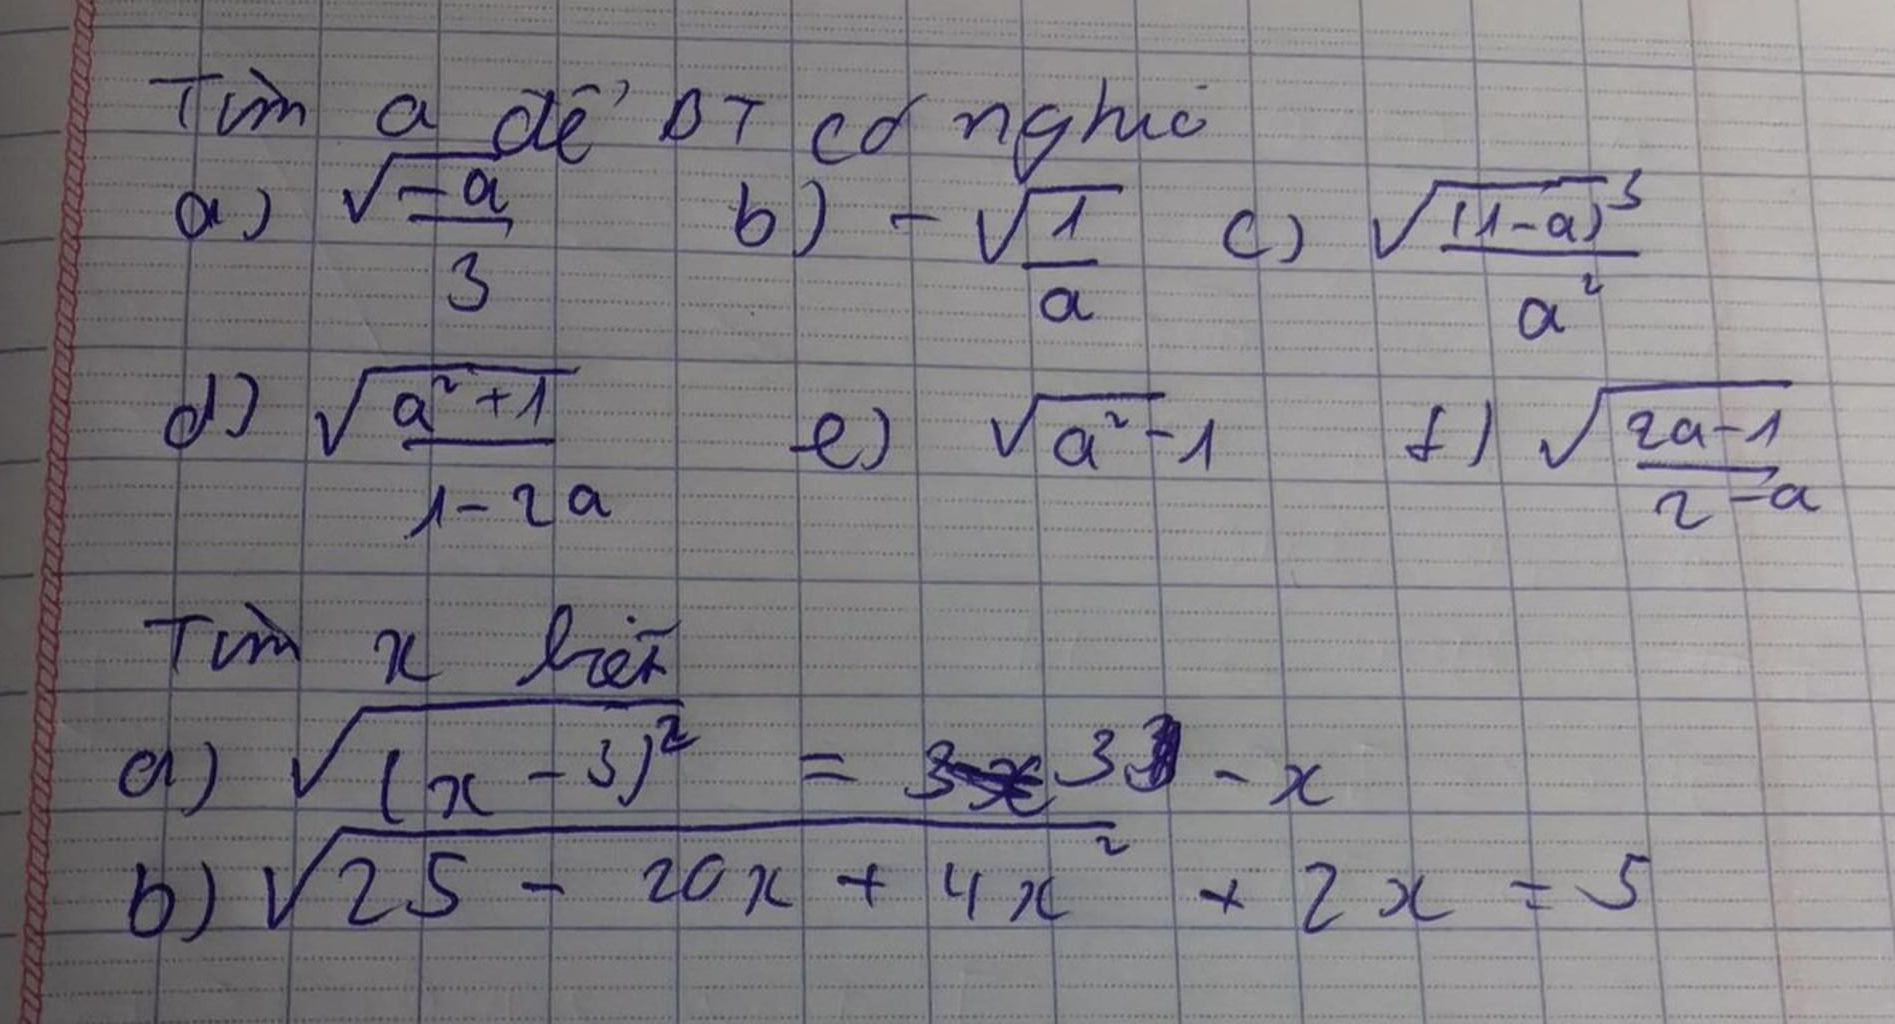 Tìm a để BT có nghĩa
a) √(-a/3) b) -√(1/a) c) √((1-a)³/a²)
d) √((a²+1)/(1-2a)) e) √(a²-1) f) √((2a-1)/(2-a))
Tìm x biết
a) √((x-3)²) = 3 - x
b) √(25 - 20x + 4x²) + 2x = 5